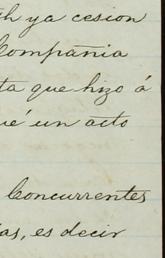 th ya cesion
Compañia
ta que hizo á
ué un acto
Concurrentes
as, es decir